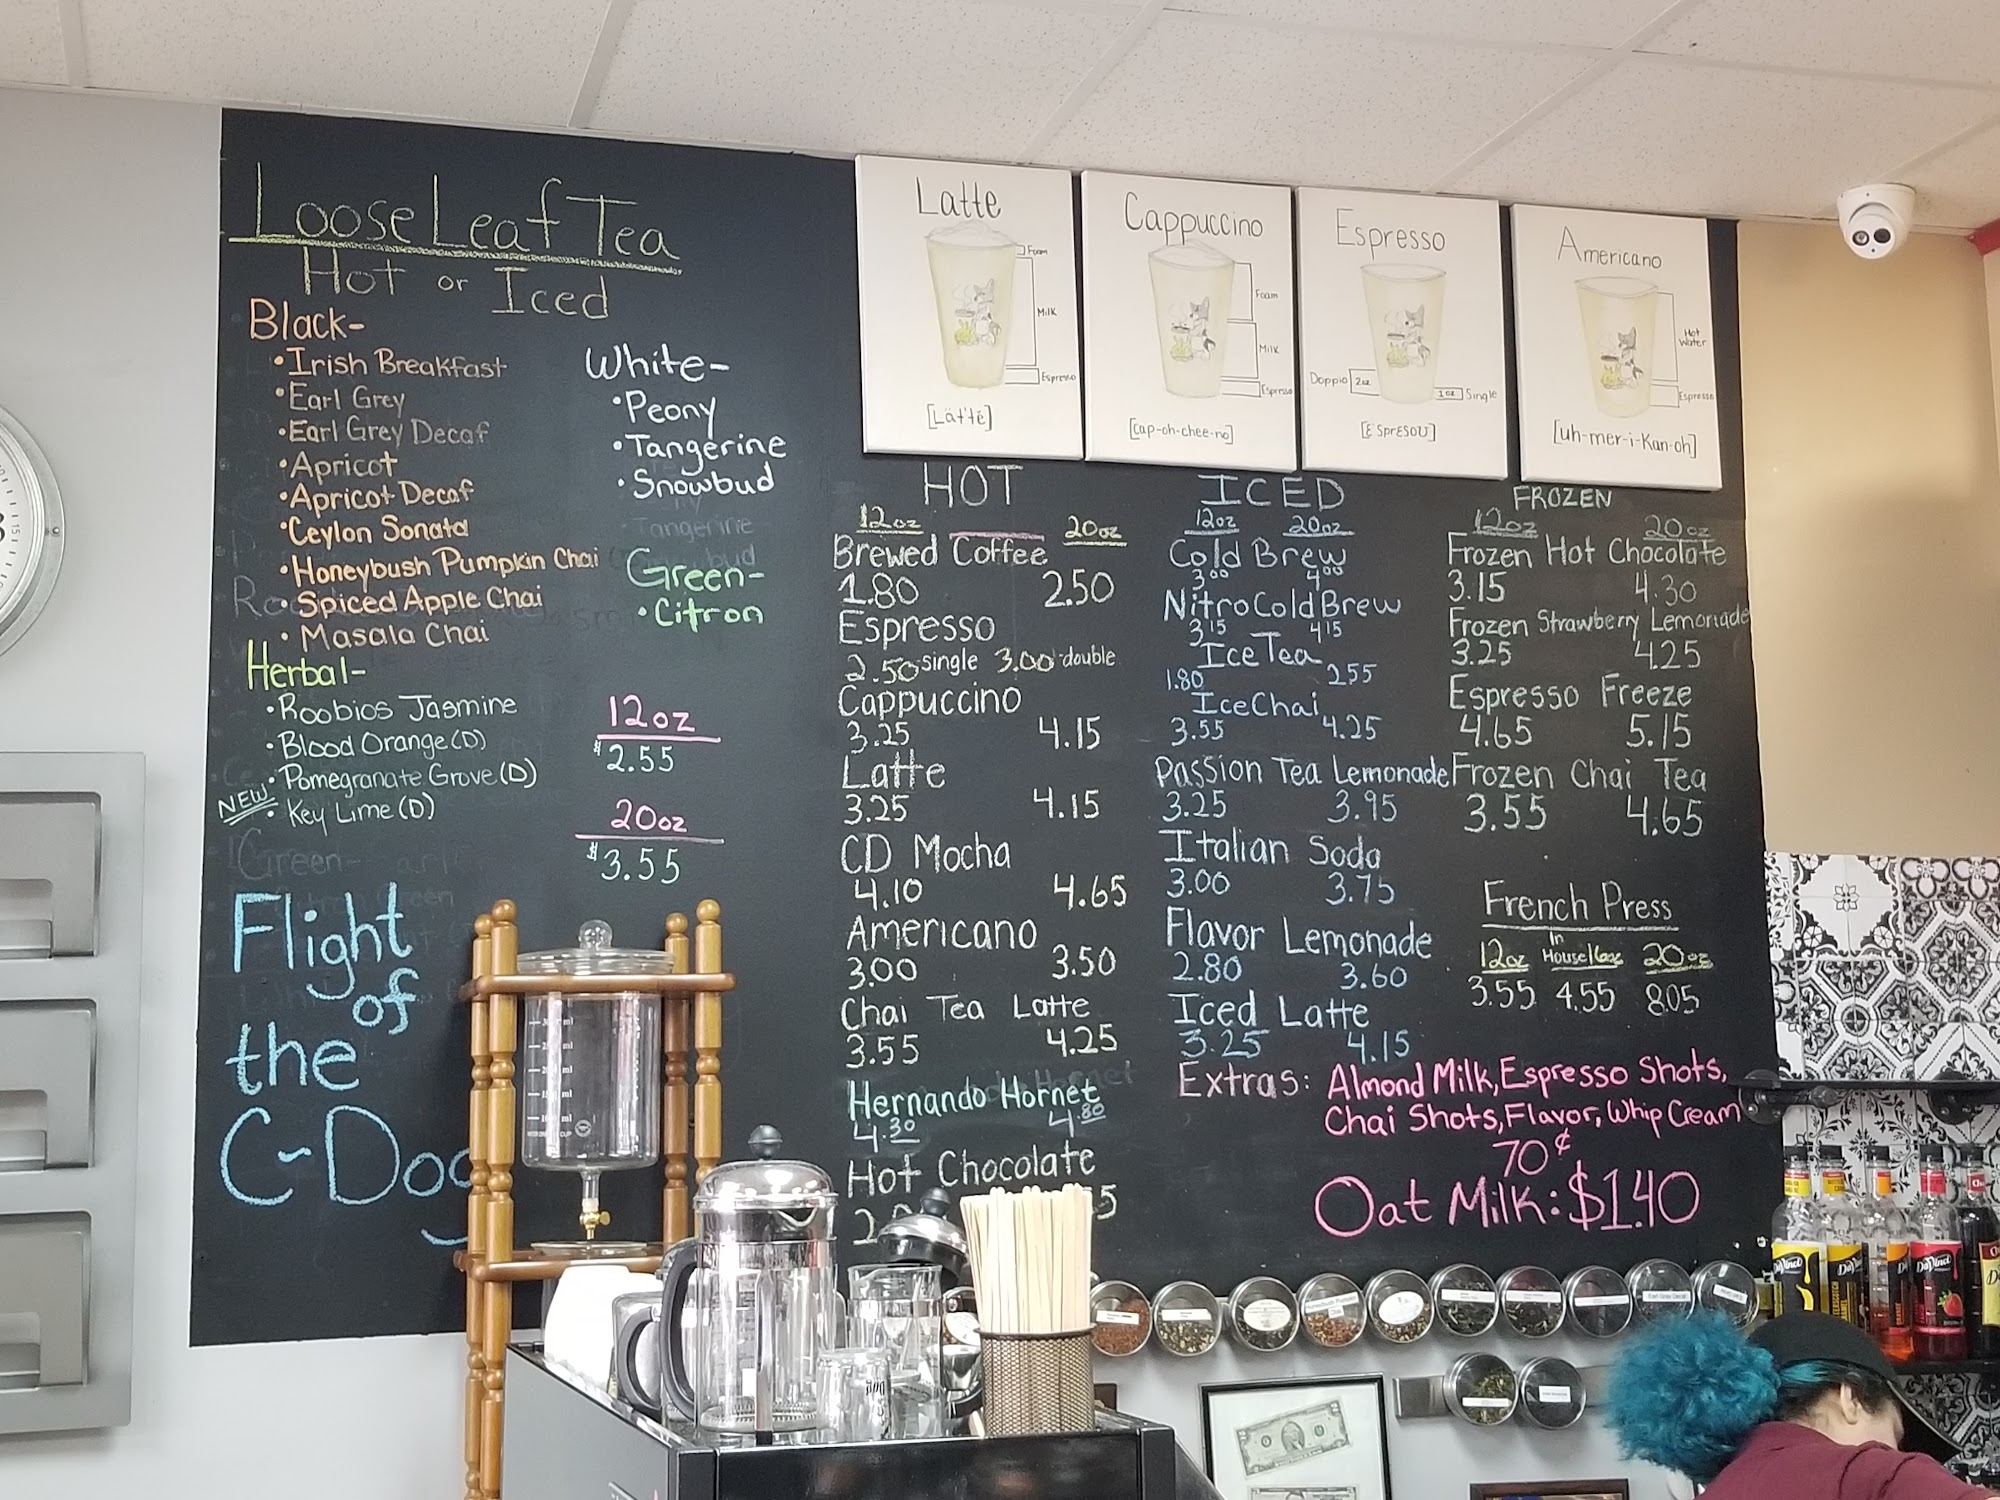 Loose Leaf Tea
Hot or Iced
Black-
• Irish Breakfast
• Earl Grey
• Earl Grey Decaf
• Apricot
• Apricot Decaf
• Ceylon Sonata
• Honeybush Pumpkin Chai
• Spiced Apple Chai
• Masala Chai
Herbal-
• Roobios Jasmine
• Blood Orange (D)
• Pomegranate Grove (D)
NEW • Key Lime (D)
White-
• Peony
• Tangerine
• Snowbud
Tangerine
Green-
• Citron
12oz
$2.55
20oz
$3.55
Green-
Flight
of
the
C-Dog
Latte
Foam
Milk
Espresso
[Lät'tē]
Cappuccino
Foam
Milk
Espresso
[cap-oh-chee-no]
Espresso
Doppio 2oz
1oz Single
[ESpRESOU]
Americano
Hot Water
Espresso
[uh-mer-i-Kan-oh]
HOT
12oz 20oz
Brewed Coffee
1.80 2.50
Espresso
2.50 single 3.00 double
Cappuccino
3.25 4.15
Latte
3.25 4.15
CD Mocha
4.10 4.65
Americano
3.00 3.50
Chai Tea Latte
3.55 4.25
Hernando Hornet
4.30 4.80
Hot Chocolate
ICED
12oz 20oz
Cold Brew
3.00 4.00
Nitro Cold Brew
3.15 4.15
Ice Tea
1.80 2.55
Ice Chai
3.55 4.25
Passion Tea Lemonade
3.25 3.95
Italian Soda
3.00 3.75
Flavor Lemonade
2.80 3.60
Iced Latte
3.25 4.15
FROZEN
12oz 20oz
Frozen Hot Chocolate
3.15 4.30
Frozen Strawberry Lemonade
3.25 4.25
Espresso Freeze
4.65 5.15
Frozen Chai Tea
3.55 4.65
French Press
12oz In House 16oz 20oz
3.55 4.55 8.05
Extras: Almond Milk, Espresso Shots,
Chai Shots, Flavor, Whip Cream
70¢
Oat Milk: $1.40
DaVinci
DaVinci